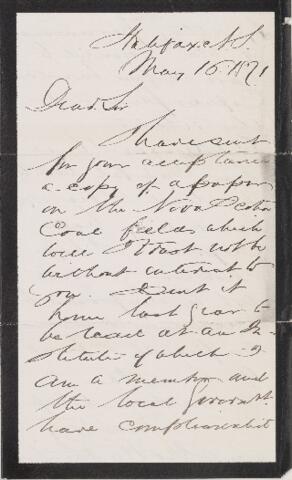 Halifax N.S.
May 16 1871
Dear Sir
I have sent
for your acceptance
a copy of a paper
on the Nova Scotia
Coal fields which
will I trust not be
without interest to
you. I sent it
home last year to
be read at an In
stitute of which I
am a member and
the local Governmt
have complimented